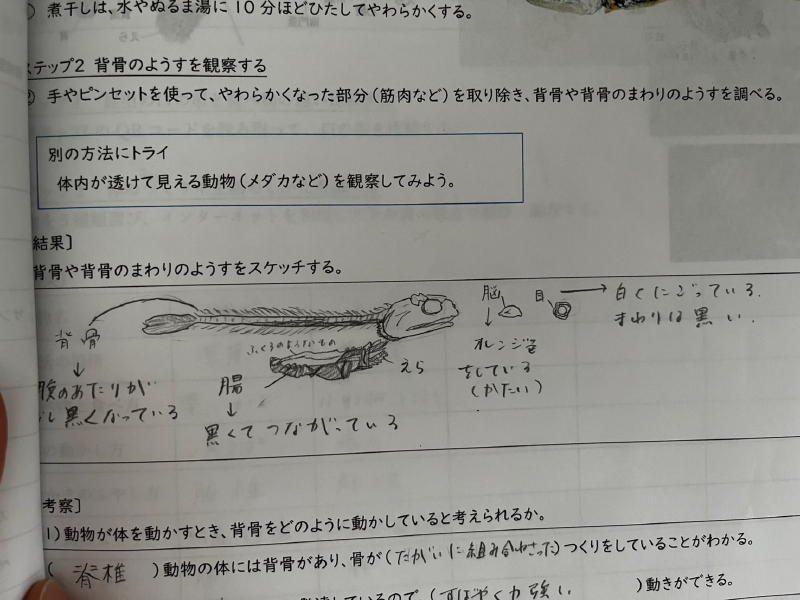 煮干しは、水やぬるま湯に10分ほどひたしてやわらかくする。
ステップ2 背骨のようすを観察する
② 手やピンセットを使って、やわらかくなった部分(筋肉など)を取り除き、背骨や背骨のまわりのようすを調べる。
別の方法にトライ
体内が透けて見える動物(メダカなど)を観察してみよう。
結果]
背骨や背骨のまわりのようすをスケッチする。
背骨
↓
腹のあたりが
し黒くなっている
ふくろのようなもの
腸
↓
黒くてつながっている
えら
脳
↓
オレンジ色
をしている
(かたい)
目 → 白くにごっている.
まわりは黒い.
考察]
1)動物が体を動かすとき、背骨をどのように動かしていると考えられるか。
( 脊椎 )動物の体には背骨があり、骨が(たがいに組み合わさった)つくりをしていることがわかる。
達しているので、(すばやく力強い )動きができる。